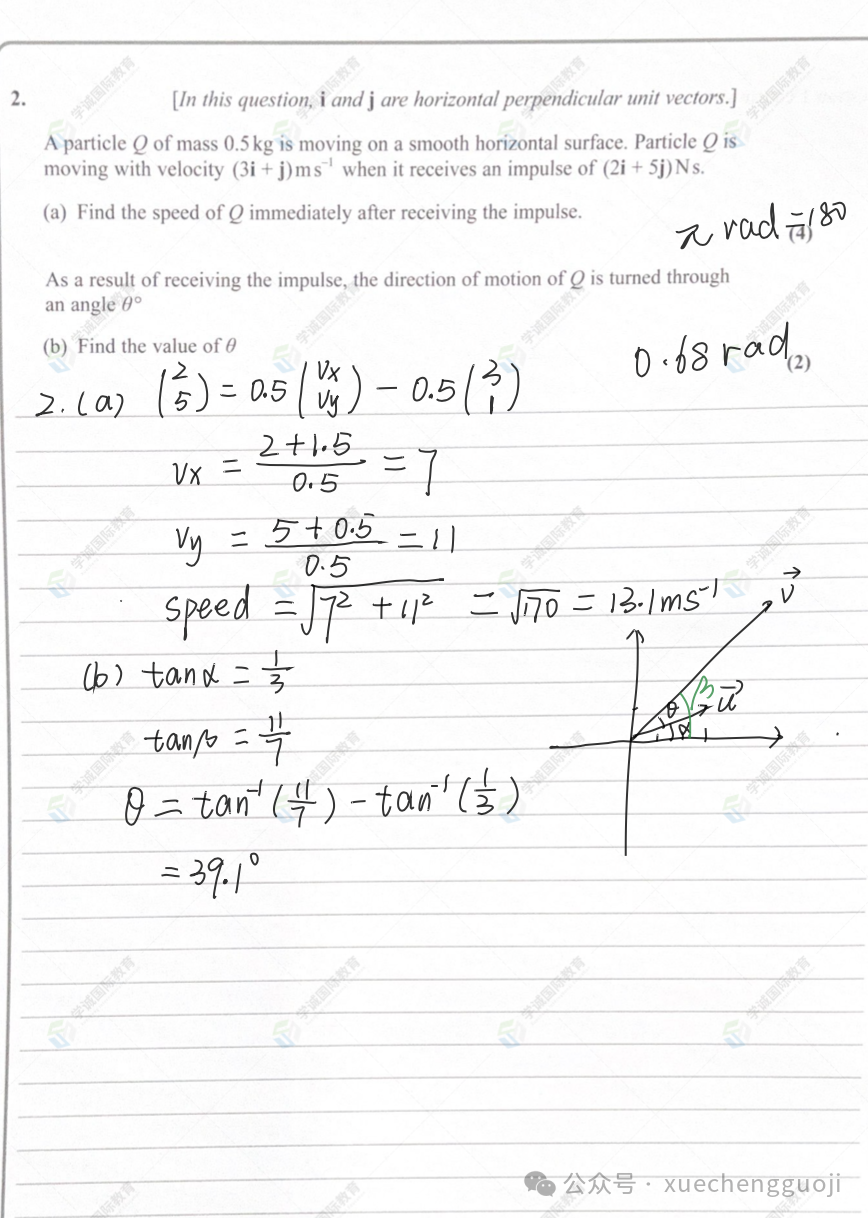 2. [In this question, i and j are horizontal perpendicular unit vectors.]
A particle Q of mass 0.5 kg is moving on a smooth horizontal surface. Particle Q is
moving with velocity (3i + j) m s⁻¹ when it receives an impulse of (2i + 5j) N s.
(a) Find the speed of Q immediately after receiving the impulse.
π rad = 180
(4)
As a result of receiving the impulse, the direction of motion of Q is turned through
an angle θ°
(b) Find the value of θ
0.68 rad
(2)
2. (a) (2 5) = 0.5 (vx vy) − 0.5 (3 1)
vx = (2+1.5)/0.5 = 7
vy = (5+0.5)/0.5 = 11
speed = √(7² + 11²) = √170 = 13.1 ms⁻¹
(b) tanα = 1/3
tanβ = 11/7
θ = tan⁻¹(11/7) − tan⁻¹(1/3)
= 39.1°
v⃗
β
θ
u⃗
α
学诚国际教育
公众号 · xuechengguoji